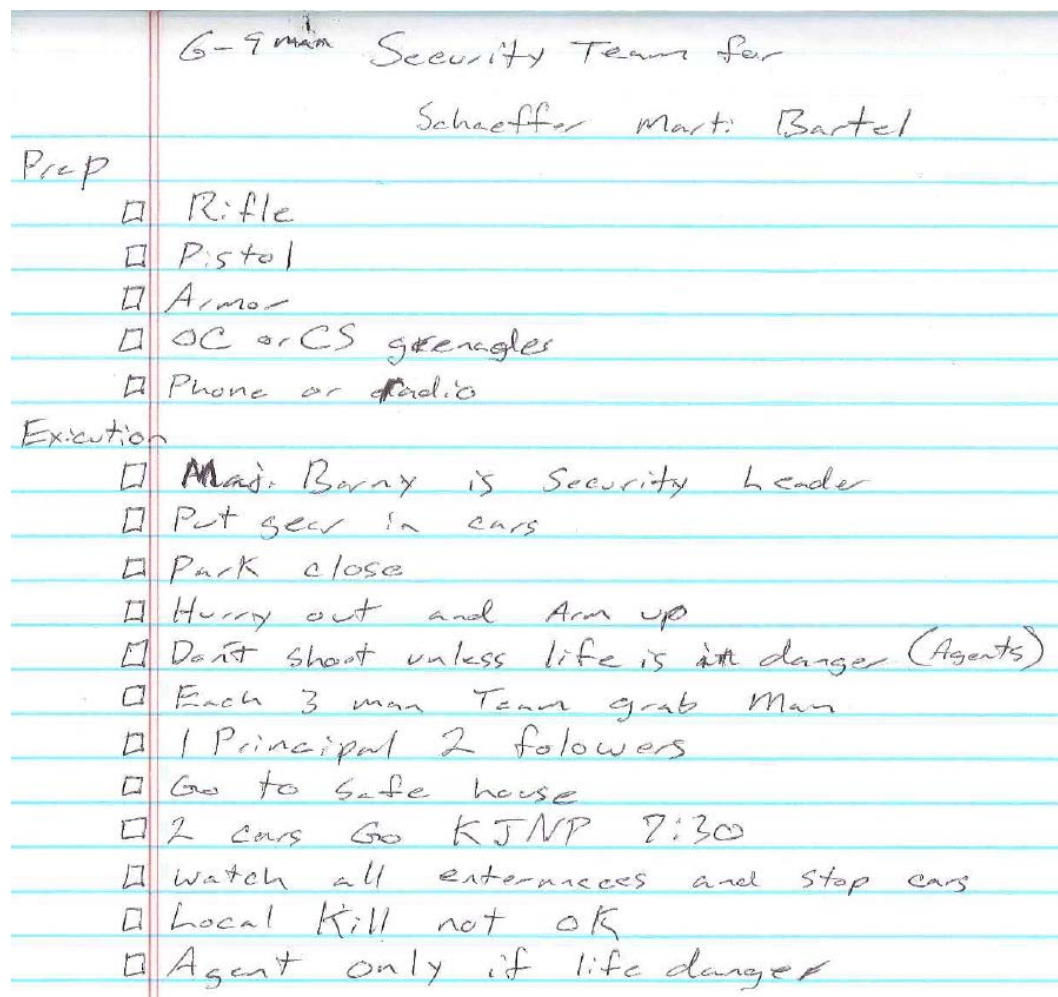 6-9 man Security Team for
Schaeffer Marti Bartel
Prep
Rifle
Pistol
Armor
OC or CS grenagles
Phone or radio
Exicution
Maj. Barny is Security Leader
Put gear in cars
Park close
Hurry out and Arm up
Don't shoot unless life is in danger (Agents)
Each 3 man Team grab Man
1 Principal 2 folowers
Go to safe house
2 cars Go KJNP 7:30
watch all enternneces and stop cars
Local Kill not ok
Agent only if life danger